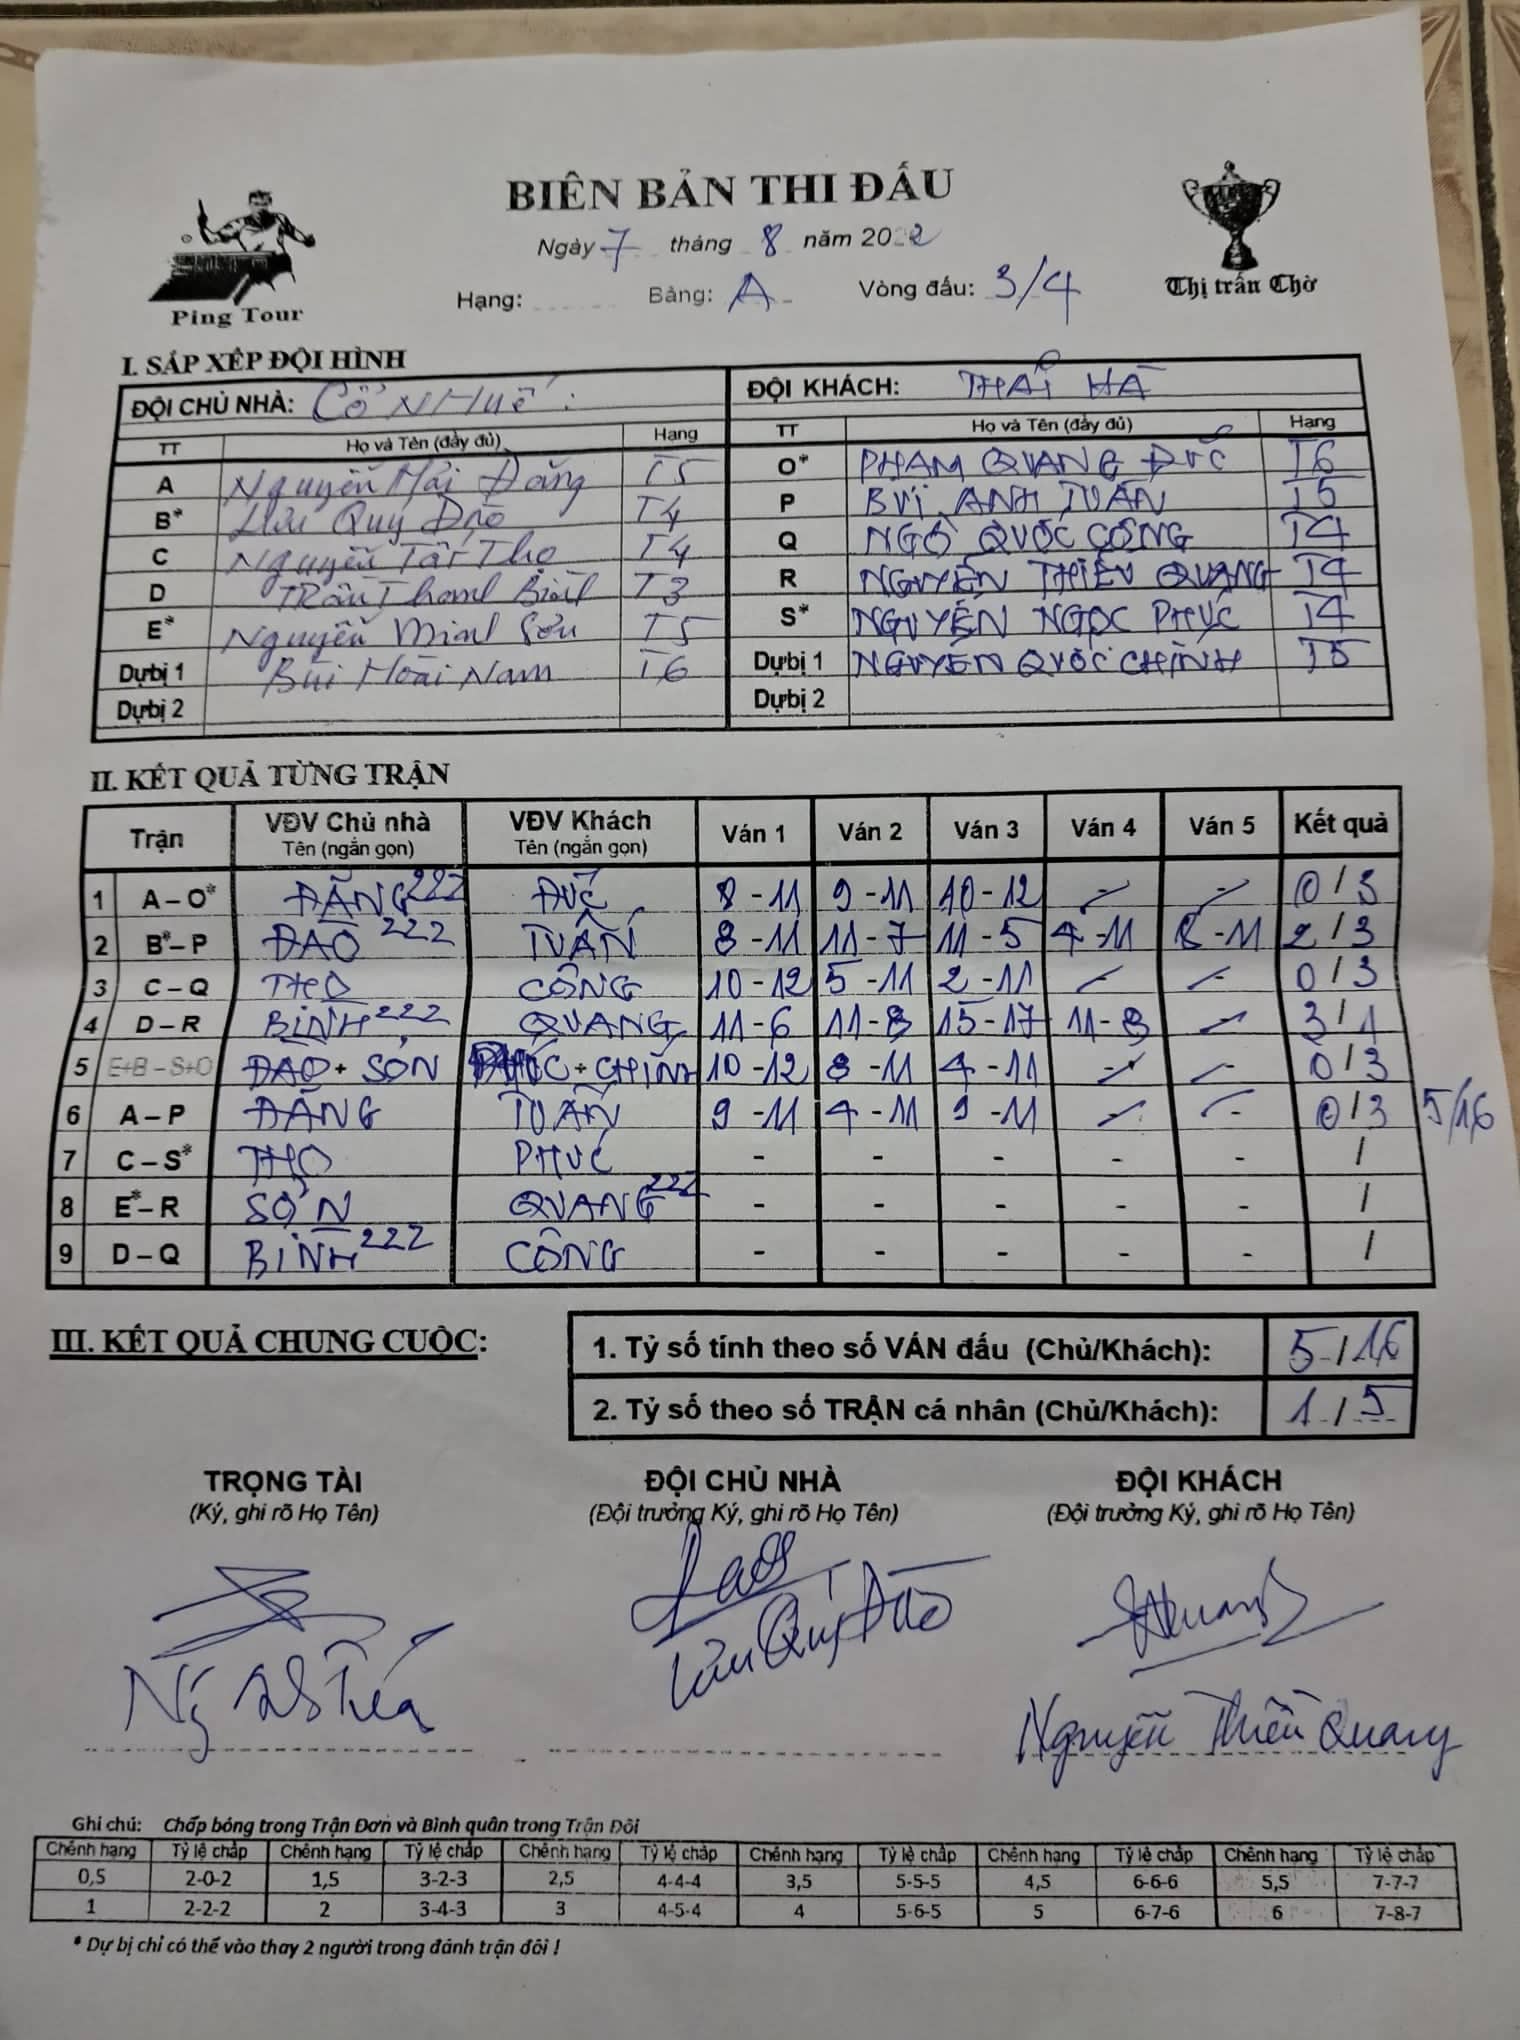 BIÊN BẢN THI ĐẤU
Ngày 7 tháng 8 năm 2022
Hạng: Bảng: A Vòng đấu: 3/4
Ping Tour
Thị trấn Chờ
I. SẮP XẾP ĐỘI HÌNH
ĐỘI CHỦ NHÀ: CỔ NHUẾ ĐỘI KHÁCH: THÁI HÀ
TT Họ và Tên (đầy đủ) Hạng TT Họ và Tên (đầy đủ) Hạng
A Nguyễn Hải Đăng T5 O* PHẠM QUANG ĐỨC T6
B* Lưu Quý Đạo T4 P BÙI ANH TUẤN T5
C Nguyễn Tất Thọ T4 Q NGÔ QUỐC CÔNG T4
D Trần Thanh Bình T3 R NGUYỄN THIỀU QUANG T4
E* Nguyễn Minh Sơn T5 S* NGUYỄN NGỌC PHÚC T4
Dự bị 1 Bùi Hoài Nam T6 Dự bị 1 NGUYỄN QUỐC CHÍNH T5
Dự bị 2 Dự bị 2
II. KẾT QUẢ TỪNG TRẬN
Trận VĐV Chủ nhà Tên (ngắn gọn) VĐV Khách Tên (ngắn gọn) Ván 1 Ván 2 Ván 3 Ván 4 Ván 5 Kết quả
1 A – O* ĐĂNG 222 ĐỨC 8 - 11 9 - 11 10 - 12 - - 0 / 3
2 B* – P ĐẠO 222 TUẤN 8 - 11 11 - 7 11 - 5 4 - 11 8 - 11 2 / 3
3 C – Q THỌ CÔNG 10 - 12 5 - 11 2 - 11 - - 0 / 3
4 D – R BÌNH 222 QUANG 11 - 6 11 - 8 15 - 17 11 - 8 - 3 / 1
5 E+B – S+O ĐẠO + SƠN + CHÍNH 10 - 12 8 - 11 4 - 11 - - 0 / 3
6 A – P ĐĂNG TUẤN 9 - 11 4 - 11 9 - 11 - - 0 / 3 5/16
7 C – S* THỌ PHÚC - - - - - /
8 E* – R SƠN QUANG 222 - - - - - /
9 D – Q BÌNH 222 CÔNG - - - - - /
III. KẾT QUẢ CHUNG CUỘC:
1. Tỷ số tính theo số VÁN đấu (Chủ/Khách): 5 / 16
2. Tỷ số theo số TRẬN cá nhân (Chủ/Khách): 1 / 5
TRỌNG TÀI ĐỘI CHỦ NHÀ ĐỘI KHÁCH
(Ký, ghi rõ Họ Tên) (Đội trưởng Ký, ghi rõ Họ Tên) (Đội trưởng Ký, ghi rõ Họ Tên)
Lưu Quý Đạo
Nguyễn Thiều Quang
Ghi chú: Chấp bóng trong Trận Đơn và Bình quân trong Trận Đôi
Chênh hạng Tỷ lệ chấp Chênh hạng Tỷ lệ chấp Chênh hạng Tỷ lệ chấp Chênh hạng Tỷ lệ chấp Chênh hạng Tỷ lệ chấp Chênh hạng Tỷ lệ chấp
0,5 2-0-2 1,5 3-2-3 2,5 4-4-4 3,5 5-5-5 4,5 6-6-6 5,5 7-7-7
1 2-2-2 2 3-4-3 3 4-5-4 4 5-6-5 5 6-7-6 6 7-8-7
* Dự bị chỉ có thể vào thay 2 người trong đánh trận đôi !